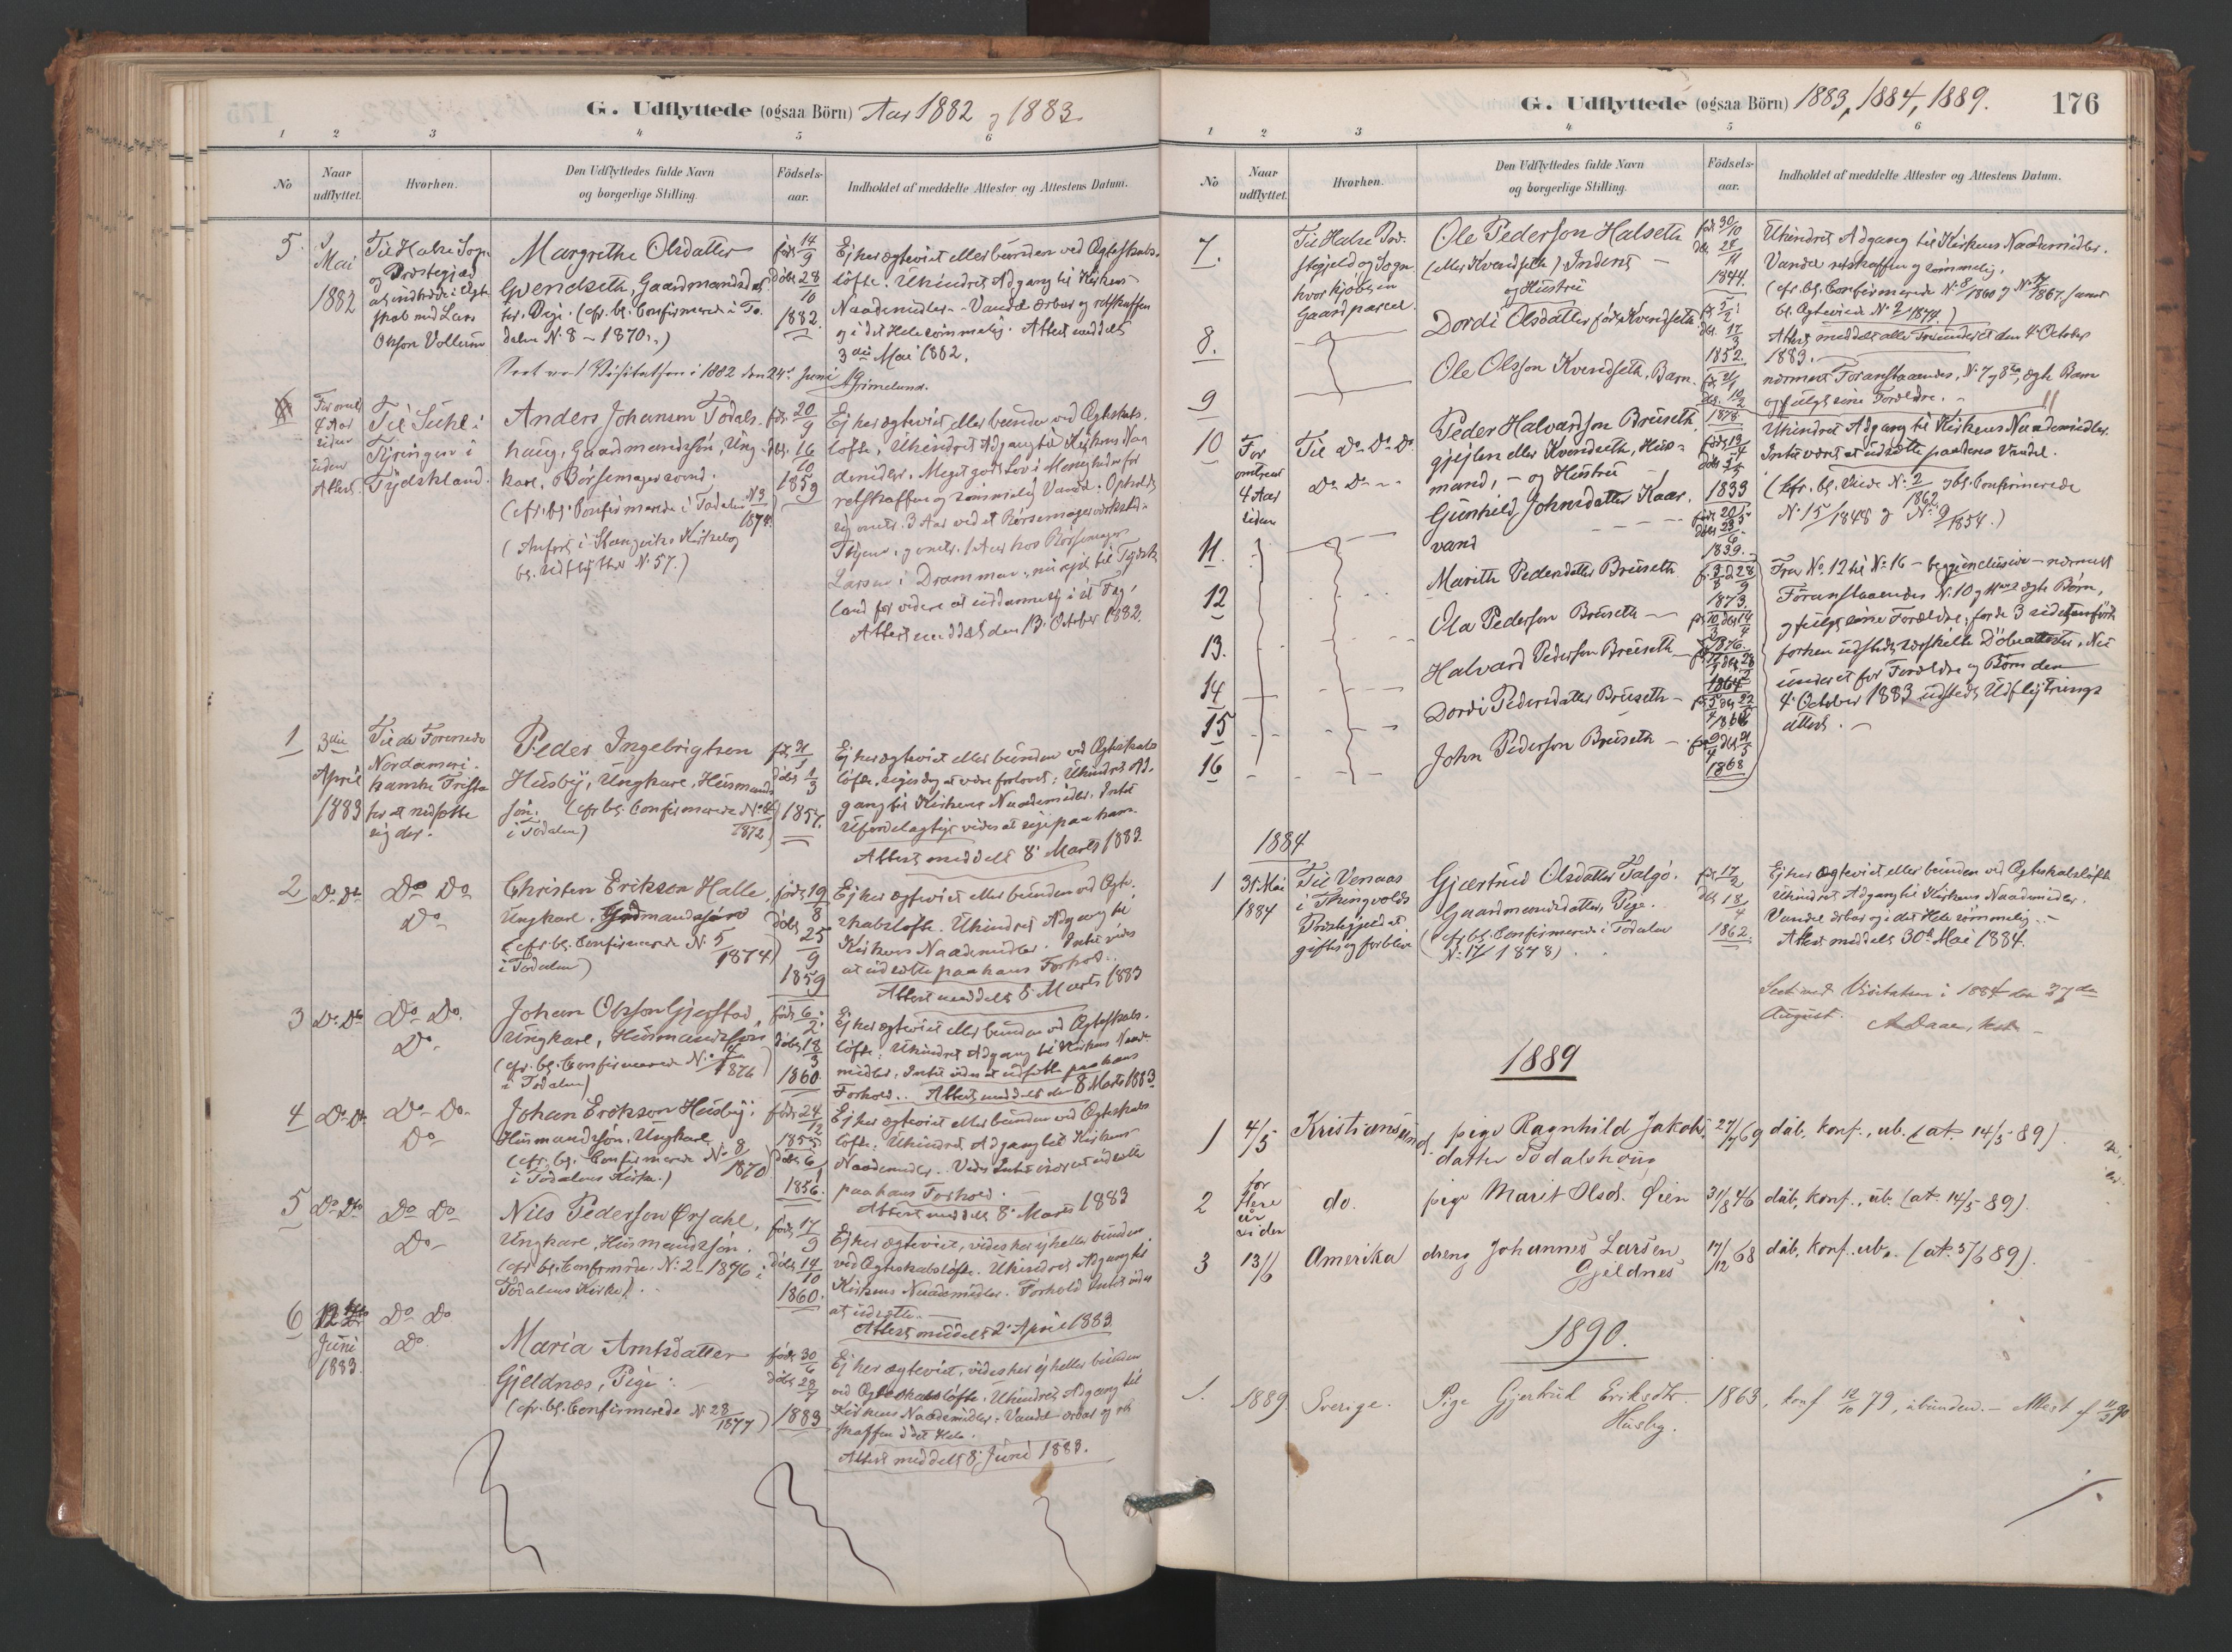 G. Udflyttede (ogsaa Börn) Aar 1882 og 1883
1 2 3 4 5 6
No
Naar udflyttet.
Hvorhen.
Den Udflyttedes fulde Navn og borgerlige Stilling.
Födsels-aar.
Indholdet af meddelte Attester og Attestens Datum.
5.
3 Mai 1882
Til Halse Sogn
og Præstegjæld
at indtræde i Ægte
skab med Lars
Olsson Vollum
Margrethe Olsdatter
Qvendseth, Gaardmandsdat
ter, Pige. (cfr. bl. Confirmerede i To-
dalen N. 8 - 1870.)
født 14/9
døbt 28/10
1882.
Ej her ægteviet eller bunden ved Ægteskabs-
løfte. Uhindret Adgang til Kirkens
Naademidler. - Vandel ærbar og retskaffen
og i det Hele sømmelig. Attest meddelt
3die Mai 1882.
Seet ved Visitatsen i 1882 den 24de Juni
Grimelund.
6
For omtr
4 Aar
siden
uden
Attest.
Til Suhl i
Tyringen i
Tydskland.
Anders Johansen Todals-
haug, Gaardmandssøn, Ung-
karl, Børsemagersvend.
(cfr. bl. Confirmerede i Todalen N. 3/1874.)
(Anført i Stangviks Kirkebog
bl. Udflyttede N. 57.)
født 20/9
døbt 16/10
1859
Ej her ægteviet eller bunden ved Ægteskabs-
løfte. Uhindret Adgang til Kirkens Naa
demidler. Meget godt Lov i Menigheden for
retskaffen og sømmelig Vandel. Opholdt
sig omtr. 3 Aar ved et Børsemagerværksted i
Thjem, og omtr. 1 Aar hos Børsemager
Larsen i Drammen, nu rejst til Tydsk
land for videre at uddannes i sit Fag.
Attest meddelt den 13. October 1882.
1
3die
April
1883
Til de Forenede
Nordameri-
kanske Frista
ter at nedsætte
sig der.
Peder Ingebrigtsen
Husby, Ungkarl, Husmands
søn. (cfr. bl. Confirmerede N. 4/1872
i Todalen)
født 31/1
døbt 1/3
1857.
Ej her ægteviet eller bunden ved Ægteskabs
løfte, siges dog at være forlovet; Uhindret Ad-
gang til Kirkens Naademidler. Intet
Ufordelagtigt vides at sige paa ham.
Attest meddelt 8. Marts 1883.
2
Do Do
Do Do
Do
Christen Erikson Halle,
Ungkarl, Gaardmandssøn
(cfr. bl. Confirmerede N. 5/1874
i Todalen)
født 19/8
døbt 25/9
1859
Ej her ægteviet eller bunden ved Ægte-
skabsløfte. Uhindret Adgang til
Kirkens Naademidler. Intet vides
at udsætte paa hans Forhold.
Attest meddelt 8 Marts 1883
3
Do Do
Do Do.
Do
Johan Olsson Gjerstad,
Ungkarl, Husmandssøn
(cfr. bl. Confirmerede N. 4/1876
i Todalen)
født 6/2
døbt 18/3
1860.
Ej her ægteviet eller bunden ved Ægteskabs-
løfte. Uhindret Adgang til Kirkens Naade
midler. Intet vides at udsætte paa hans
Forhold. Attest meddelt den 8 Marts 1883
4
Do Do
Do Do
Do
Johan Erikson Husby,
Husmandssøn, Ungkarl
(cfr. bl. Confirmerede N. 8/1870
i Todalens Kirke.)
født 24/12
1855
døbt 6/1
1856.
Ej her ægteviet eller bunden ved Ægteskabs
løfte. Uhindret Adgang til Kirkens
Naademidler. Vides Intet især at udsætte
paa hans Forhold.
Attest meddelt 8. Marts 1883
5
Do Do
Do Do
Do
Nils Pederson Ørsahl,
Ungkarl, Husmandssøn.
(cfr. bl. Confirmrde. N. 2 - 1876 i
Todalens Kirke).
født 17/9
døbt 14/10
1860.
Ej her ægteviet, vides her ej heller bunden
ved Ægteskabsløfte. Uhindret Adgang til
Kirkens Naademidler. Forhold Intet vides
at udsætte.
Attest meddelt 2. April 1883.
6
12te
Juni
1883.
Do Do
Do
Maria Arntsdatter
Gjeldnes, Pige.
(cfr. bl. Confirmerede N. 28/1877)
født 30/6
døbt 29/7
1883
Ej her ægteviet, vides her ej heller bunden
ved Ægteskabsløfte. Uhindret Adgang til
Kirkens Naademidler. Vandel ærbar og ret
skaffen i det Hele.
Attest meddelt 8. Juni 1883.
G. Udflyttede (ogsaa Börn) 1883, 1884, 1889.
176
1 2 3 4 5 6
No
Naar udflyttet.
Hvorhen.
Den Udflyttedes fulde Navn og borgerlige Stilling.
Födsels-aar.
Indholdet af meddelte Attester og Attestens Datum.
7.
Til Halse Præ-
stegjeld og Sogn
hvor kjøbt en
Gaardparcel.
Ole Pederson Halseth
(eller Kvendseth) Inderst
og Hustru
født 30/10
døbt 24/11
1844.
Uhindret Adgang til Kirkens Naademidler.
Vandel retskaffen og sømmelig.
(cfr. bl. Confirmerede N. 8/1860 og N. 17/1867, samt
bl. Ægteviede N. 2/1874.)
8.
Dordi Olsdatter født Kvendseth
fdt. 5/2
døbt 17/3
1852.
Attest meddelt alle Tre under et den 4 October
1883.
9
Ole Olsson Kvendseth, Barn.
1878.
nærmest Foranstaaendes, N. 7 og 8des, ægte Barn
og fulgt sine Forældre.
10
For
omtrent
4 Aar
siden
Til Do Do Do
Do Do
Peder Halvardson Bruseth,
gjejlen eller Kvendseth, Hus-
mand, - og Hustru
1833
Uhindret Adgang til Kirkens Naademidler.
Intet værst at udsætte paa deres Vandel.
(Cfr. bl. Viede N. 2/1862 og bl. Confirmerede
N. 15/1848 og N. 9/1854.)
11.
Gunhild Johnsdatter Kaar-
vand
født 20/5
døbt 23/6
1839.
12
Marith Pedersdatter Bruseth
1873.
Fra No. 12 til No. 16 - begge inclusive - nærmest
Foranstaaendes N. 10 og 11tes ægte Børn,
og fulgt sine Forældre, for de 3 sidstanførte
forhen udstedt særskilte Døbeattester. Nu
under et for Forældre og Børn den
4. October 1883 udstedt Udflytnings
attest.
13.
Ola Pederson Bruseth
1876.
14
Halvard Pederson Bruseth
1864
15
Dordi Pedersdatter Bruseth
1866
16
John Pederson Bruseth
1868
1884
1
31. Mai
1884
Til Venaas
i Thingvolds
Præstegjeld at
giftes og forblive
Gjertrud Olsdatter Talgø.
Gaardmandsdatter, Pige.
(cfr. bl. Confirmerede i Todalen
N. 17/1878)
født 17/2
døbt 18/4
1862.
Ej her Ægteviet eller bunden ved Ægteskabsløfte
Uhindret Adgang til Kirkens Naademidler.
Vandel ærbar og i det Hele sømmelig.
Attest meddelt 30te Mai 1884.
Seet ved Visitatsen i 1884 den 27de
August. A Daae,
1889
1 4/5 Kristiansund. pige Ragnhild Jakobs-
datter Todalshaug 27/7 69 døb., konf., ub. (at. 14/5 89).
2
for
flere
år
siden
do. pige Marit Olsd. Øien 31/8 46 døb., konf., ub. (at. 14/5-89).
3 13/6 Amerika dreng Johannes Larsen
Gjeldnes 17/12 68 døb., konf., ub. (at. 5/6 89).
1890.
1. 1889 Sverige. Pige Gjertrud Eriksdtr.
Husby. 1863, konf 12/10 79, ubunden. - Attest af 11/3 90